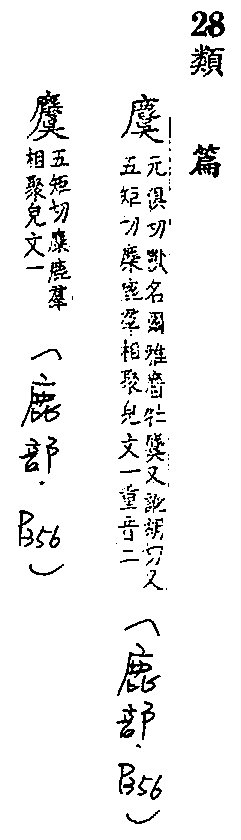 28類篇
麌元俱切獸名爾雅麕牡麌又訛胡切又
五矩切麋鹿羣相聚皃文一重音二
(鹿部.P356)
麌五矩切麋鹿羣
相聚皃文一
(鹿部.P356)